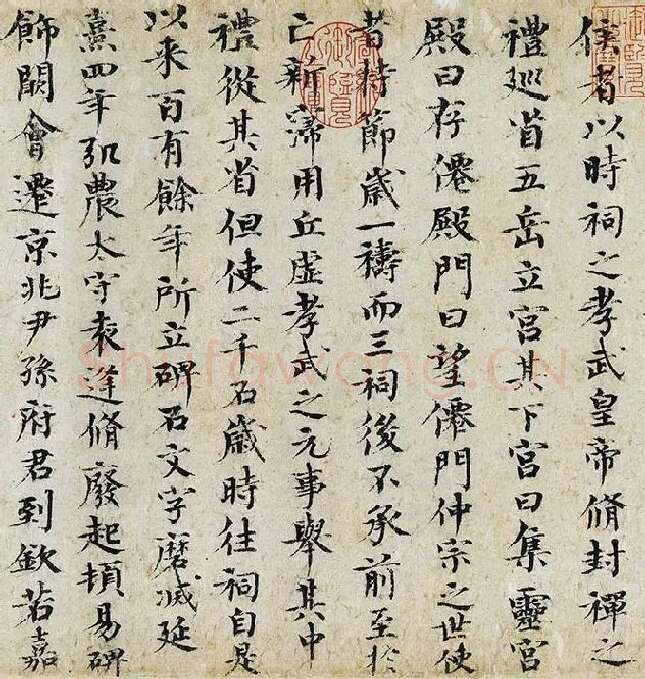 侯者以時祠之孝武皇帝脩封禪之
禮巡省五岳立宮其下宮曰集靈宮
殿曰存僊殿門曰望僊門仲宗之世使
者持節歲一禱而三祠後不承前至於
亡新用丘虛孝武之元事舉其中
禮從其省但使二千石歲時往祠自是
以来百有餘年所立碑石文字磨滅延
熹四年弘農太守袁逢脩廢起頓易碑
飾闕會遷京兆尹孫府君到欽若嘉
Shufawang.CN